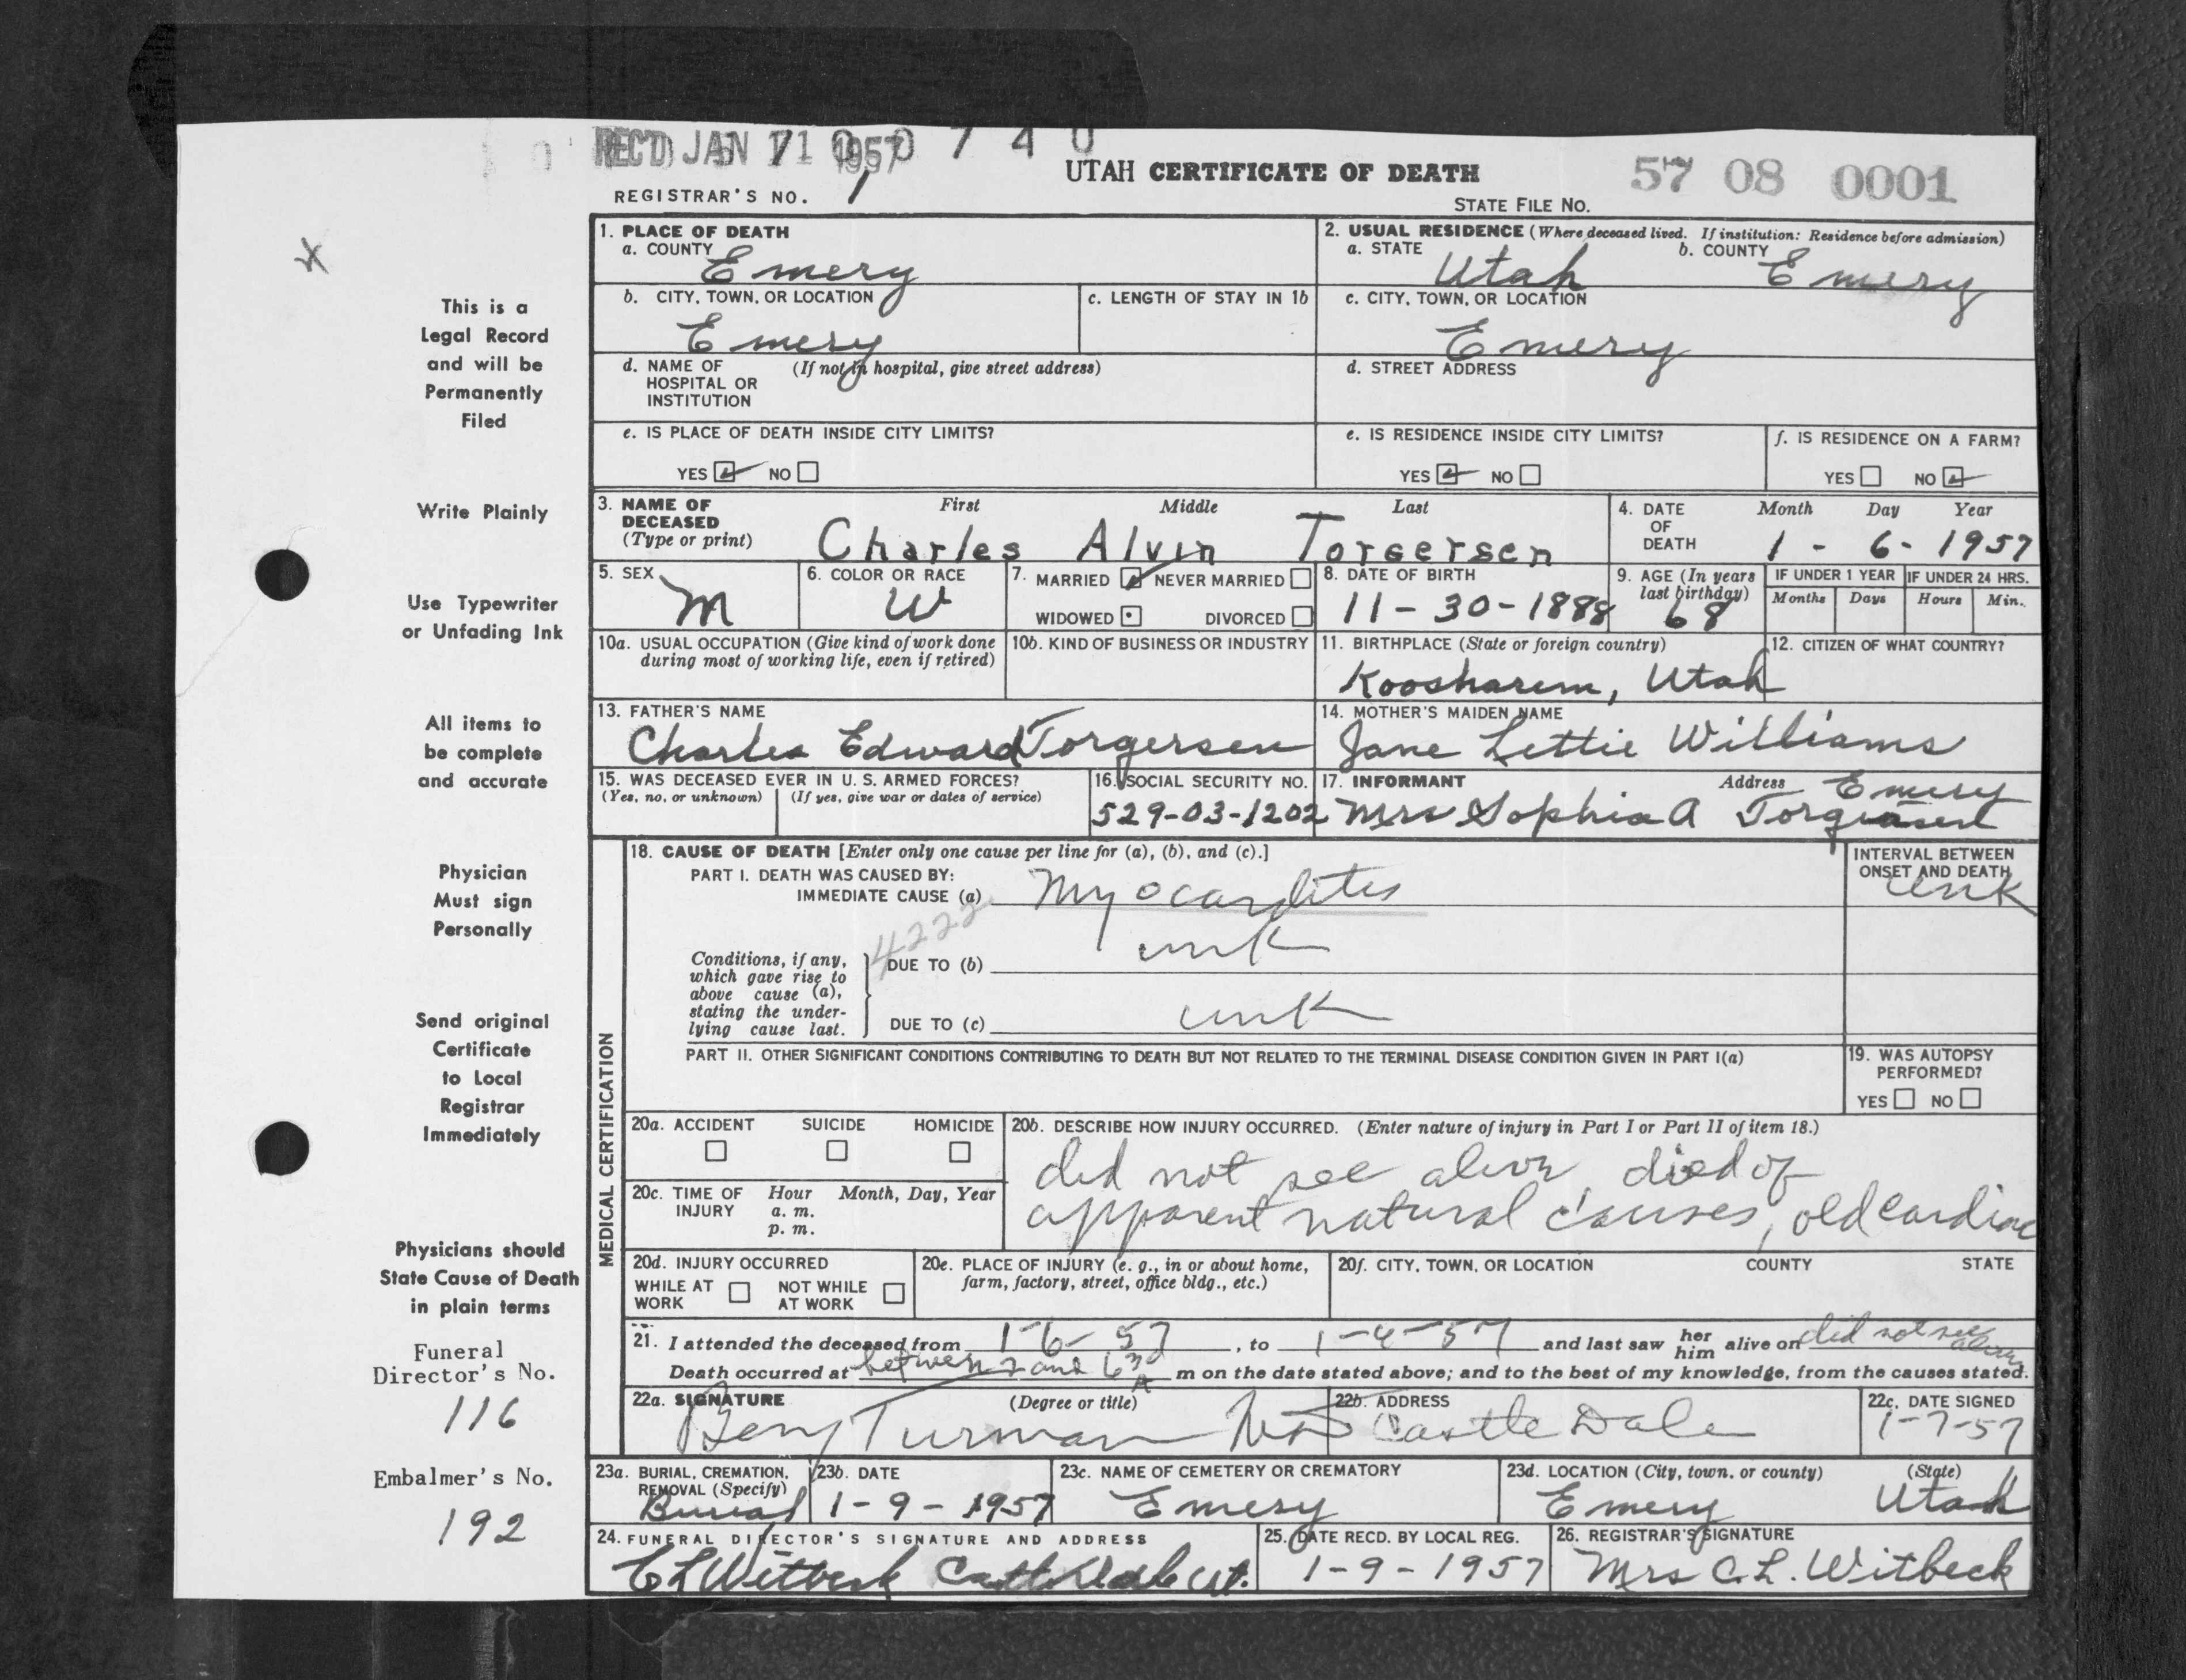 REC'D JAN 1957 0 7 4 0
UTAH CERTIFICATE OF DEATH
57 08 0001
REGISTRAR'S NO. 1
STATE FILE NO.
1. PLACE OF DEATH
a. COUNTY Emery
2. USUAL RESIDENCE (Where deceased lived. If institution: Residence before admission)
a. STATE Utah b. COUNTY Emery
b. CITY, TOWN, OR LOCATION Emery
c. LENGTH OF STAY IN 1b
c. CITY, TOWN, OR LOCATION Emery
d. NAME OF HOSPITAL OR INSTITUTION (If not in hospital, give street address)
d. STREET ADDRESS
e. IS PLACE OF DEATH INSIDE CITY LIMITS?
YES NO
e. IS RESIDENCE INSIDE CITY LIMITS?
YES NO
f. IS RESIDENCE ON A FARM?
YES NO
3. NAME OF DECEASED (Type or print)
First Middle Last
Charles Alvin Torgersen
4. DATE OF DEATH
Month Day Year
1 - 6 - 1957
5. SEX M
6. COLOR OR RACE W
7. MARRIED NEVER MARRIED
WIDOWED DIVORCED
8. DATE OF BIRTH
11 - 30 - 1888
9. AGE (In years last birthday) 68
IF UNDER 1 YEAR IF UNDER 24 HRS.
Months Days Hours Min.
10a. USUAL OCCUPATION (Give kind of work done during most of working life, even if retired)
10b. KIND OF BUSINESS OR INDUSTRY
11. BIRTHPLACE (State or foreign country)
Koosharem, Utah
12. CITIZEN OF WHAT COUNTRY?
13. FATHER'S NAME
Charles Edward Torgersen
14. MOTHER'S MAIDEN NAME
Jane Lettie Williams
15. WAS DECEASED EVER IN U. S. ARMED FORCES?
(Yes, no, or unknown) (If yes, give war or dates of service)
16. SOCIAL SECURITY NO.
529-03-1202
17. INFORMANT Address Emery
Mrs Sophia A Torgersen
MEDICAL CERTIFICATION
18. CAUSE OF DEATH [Enter only one cause per line for (a), (b), and (c).]
PART I. DEATH WAS CAUSED BY:
IMMEDIATE CAUSE (a) Myocarditis
INTERVAL BETWEEN ONSET AND DEATH
unk
4222
Conditions, if any, which gave rise to above cause (a), stating the underlying cause last.
DUE TO (b) unk
DUE TO (c) unk
PART II. OTHER SIGNIFICANT CONDITIONS CONTRIBUTING TO DEATH BUT NOT RELATED TO THE TERMINAL DISEASE CONDITION GIVEN IN PART I(a)
19. WAS AUTOPSY PERFORMED?
YES NO
20a. ACCIDENT SUICIDE HOMICIDE
20b. DESCRIBE HOW INJURY OCCURRED. (Enter nature of injury in Part I or Part II of item 18.)
did not see alive, died of
apparent natural causes, old cardiac
20c. TIME OF INJURY Hour Month, Day, Year
a. m.
p. m.
20d. INJURY OCCURRED
WHILE AT WORK NOT WHILE AT WORK
20e. PLACE OF INJURY (e. g., in or about home, farm, factory, street, office bldg., etc.)
20f. CITY, TOWN, OR LOCATION COUNTY STATE
21. I attended the deceased from 1-6-57, to 1-6-57 and last saw her him alive on did not see alive
Death occurred at between 2 and 6 30 A m on the date stated above; and to the best of my knowledge, from the causes stated.
22a. SIGNATURE (Degree or title)
Benj Turman MD
22b. ADDRESS
Castle Dale
22c. DATE SIGNED
1-7-57
23a. BURIAL, CREMATION, REMOVAL (Specify)
Burial
23b. DATE
1 - 9 - 1957
23c. NAME OF CEMETERY OR CREMATORY
Emery
23d. LOCATION (City, town, or county) (State)
Emery Utah
24. FUNERAL DIRECTOR'S SIGNATURE AND ADDRESS
C L Witbeck Castle Dale Ut.
25. DATE RECD. BY LOCAL REG.
1 - 9 - 1957
26. REGISTRAR'S SIGNATURE
Mrs C. L. Witbeck
This is a
Legal Record
and will be
Permanently
Filed
Write Plainly
Use Typewriter
or Unfading Ink
All items to
be complete
and accurate
Physician
Must sign
Personally
Send original
Certificate
to Local
Registrar
Immediately
Physicians should
State Cause of Death
in plain terms
Funeral
Director's No.
116
Embalmer's No.
192